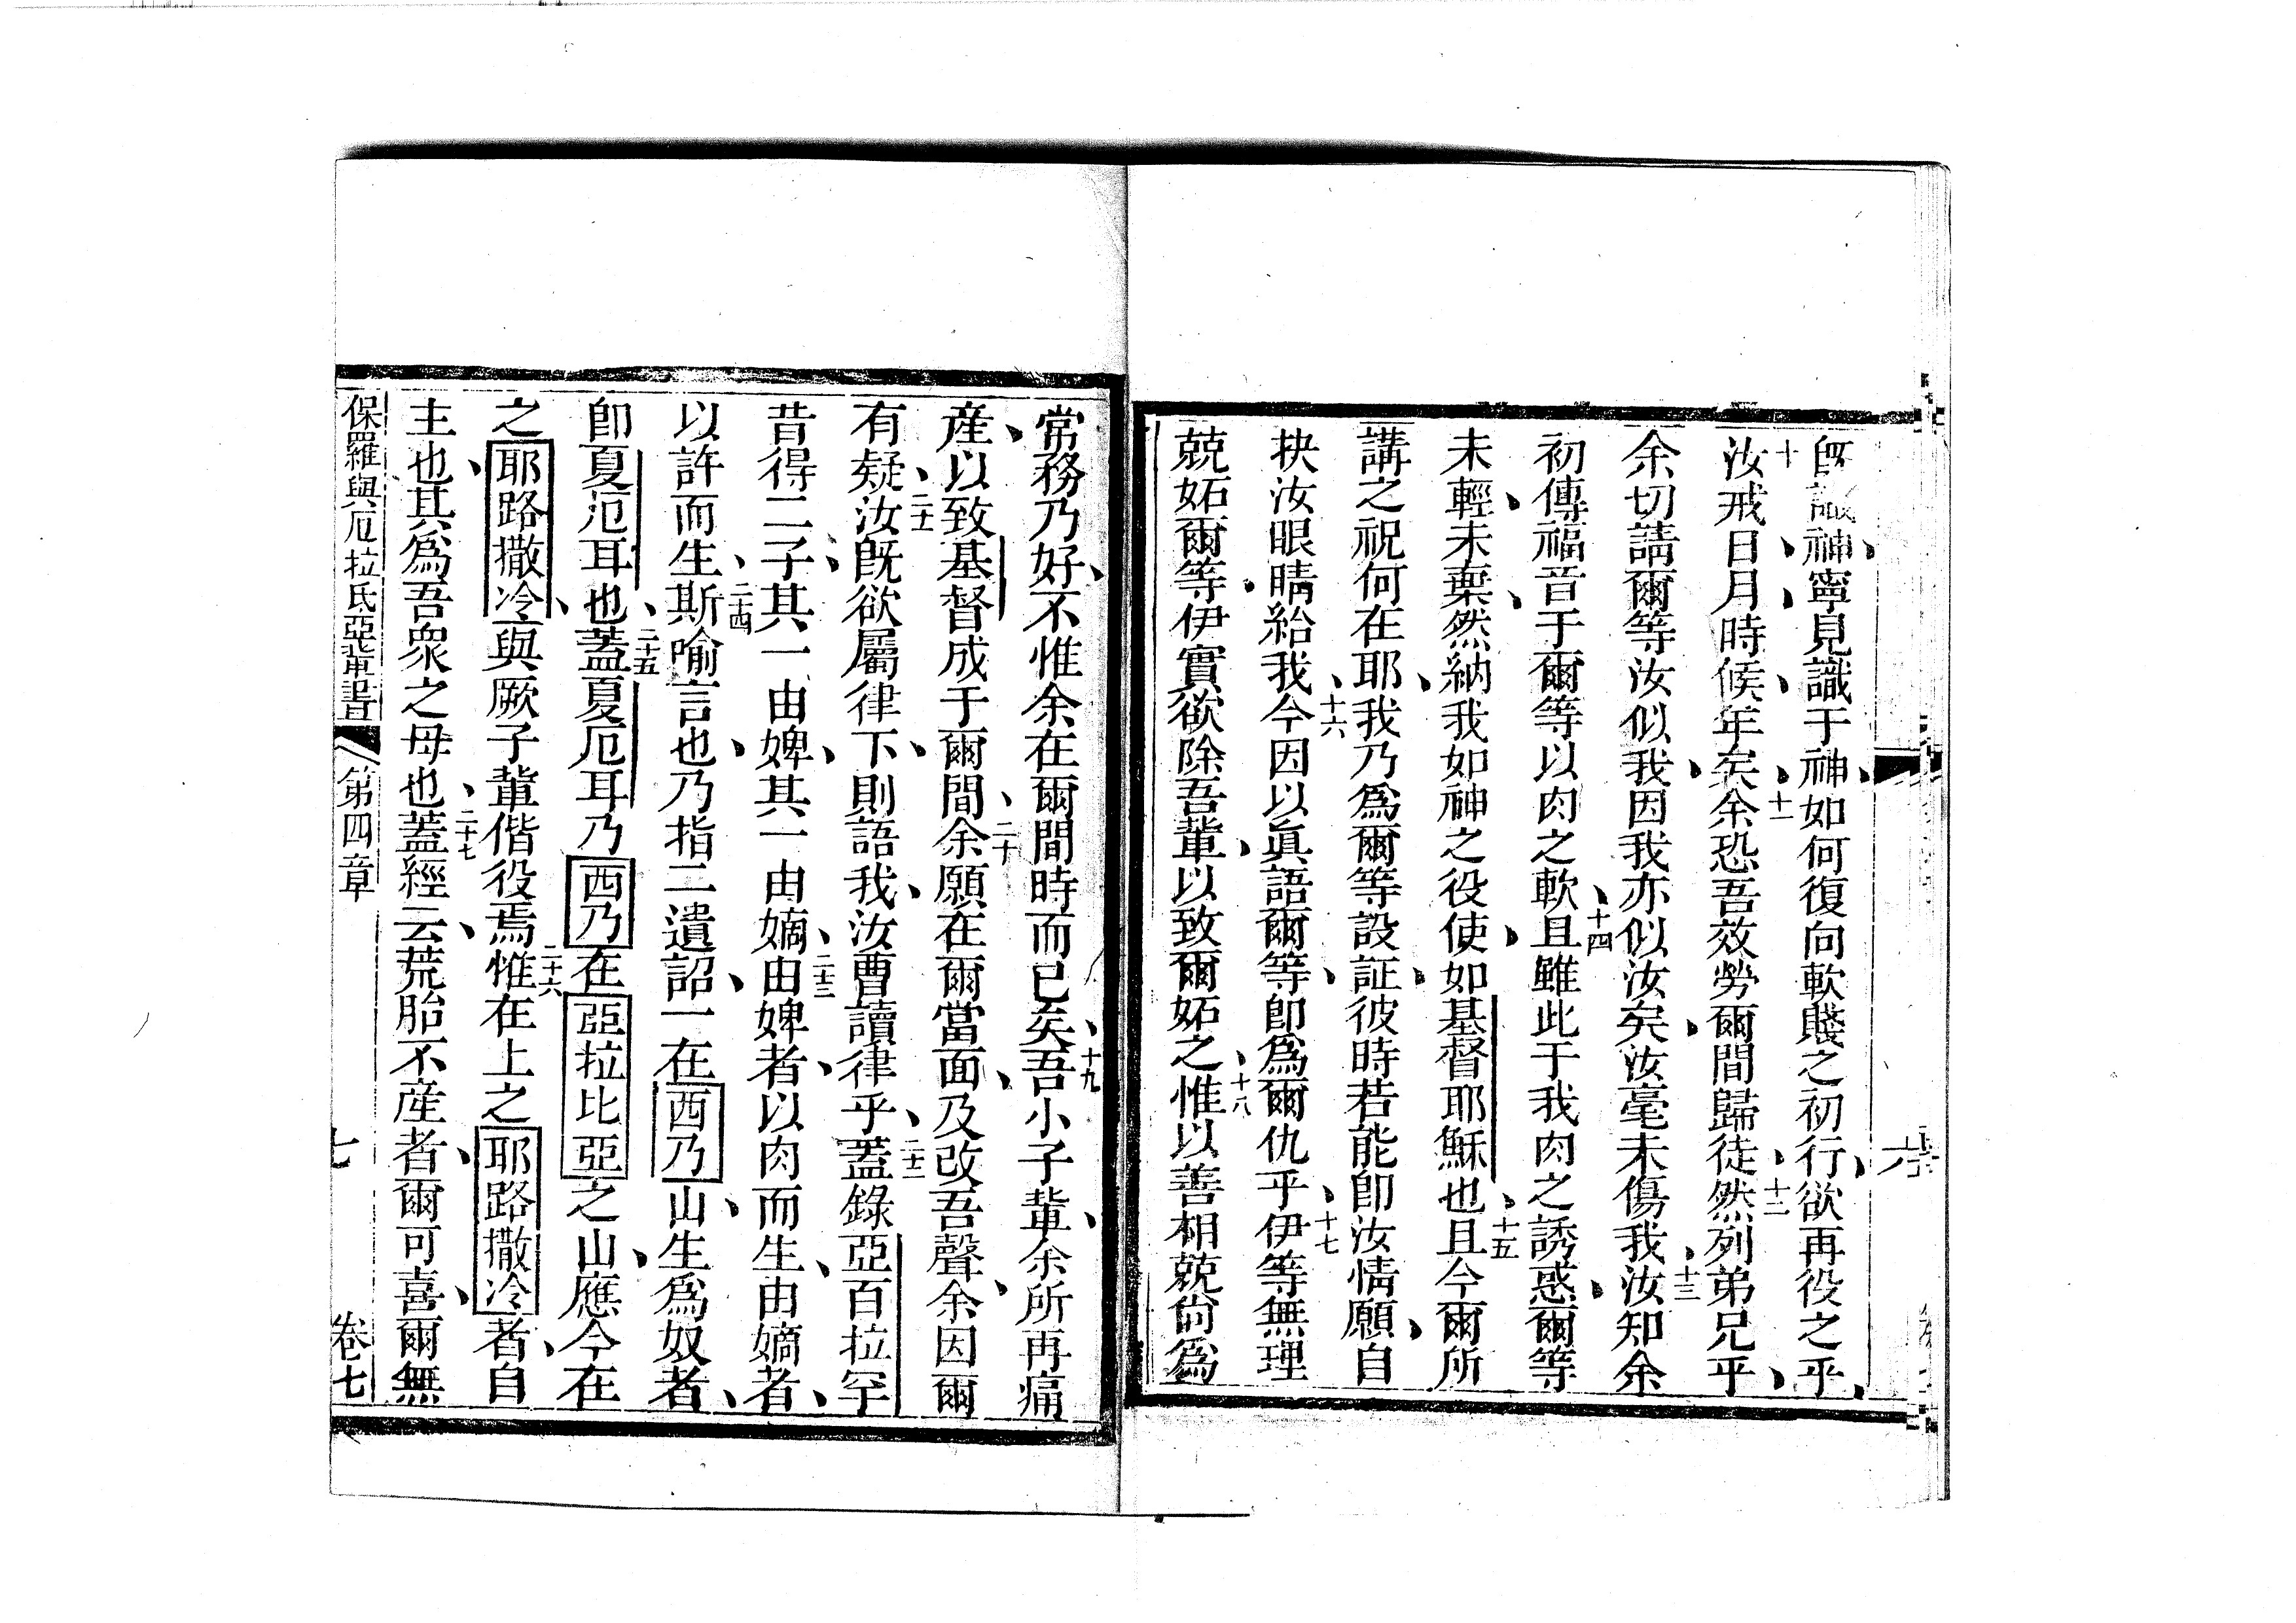 既識神、寧見識于神、如何復向軟賤之初行、欲再役之乎、
十汝戒日、月、時候、年矣、十一余恐吾效勞爾間歸徒、十二然列弟兄乎、
余切請爾等汝似我、因我亦似汝矣、汝毫未傷我、十三汝知余
初傳福音于爾等以肉之軟、十四且雖此于我肉之誘惑、爾等
未輕、未棄、然納我如神之役使、如基督耶穌也、十五且今爾所
講之祝何在耶、我乃爲爾等設証、彼時若能卽汝情願、自
抉汝眼睛給我、十六今因以眞語爾等、卽爲爾仇乎、十七伊等無理
兢妬爾等、伊實欲除吾輩、以致爾妬之、十八惟以善相兢尙爲
常務乃好、不惟余在爾間時而已矣、十九吾小子輩、余所再痛
産、以致基督成于爾間、二十余願在爾當面、及改吾聲、余因爾
有疑、二十一汝旣欲屬律下、則語我、汝曹讀律乎、二十二蓋錄亞百拉罕
昔得二子、其一由婢、其一由嫡、二十三由婢者、以肉而生、由嫡者、
以許而生、二十四斯喻言也、乃指二遺詔、一在西乃山、生爲奴者、
卽夏厄耳也、二十五蓋夏厄耳乃西乃在亞拉比亞之山、應今在
之耶路撒冷、與厥子輩偕役焉、二十六惟在上之耶路撒冷者、自
主也、其爲吾衆之母也、二十七蓋經云、荒胎不産者、爾可喜、爾無
保羅與厄拉氏亞輩書 第四章 七 卷七